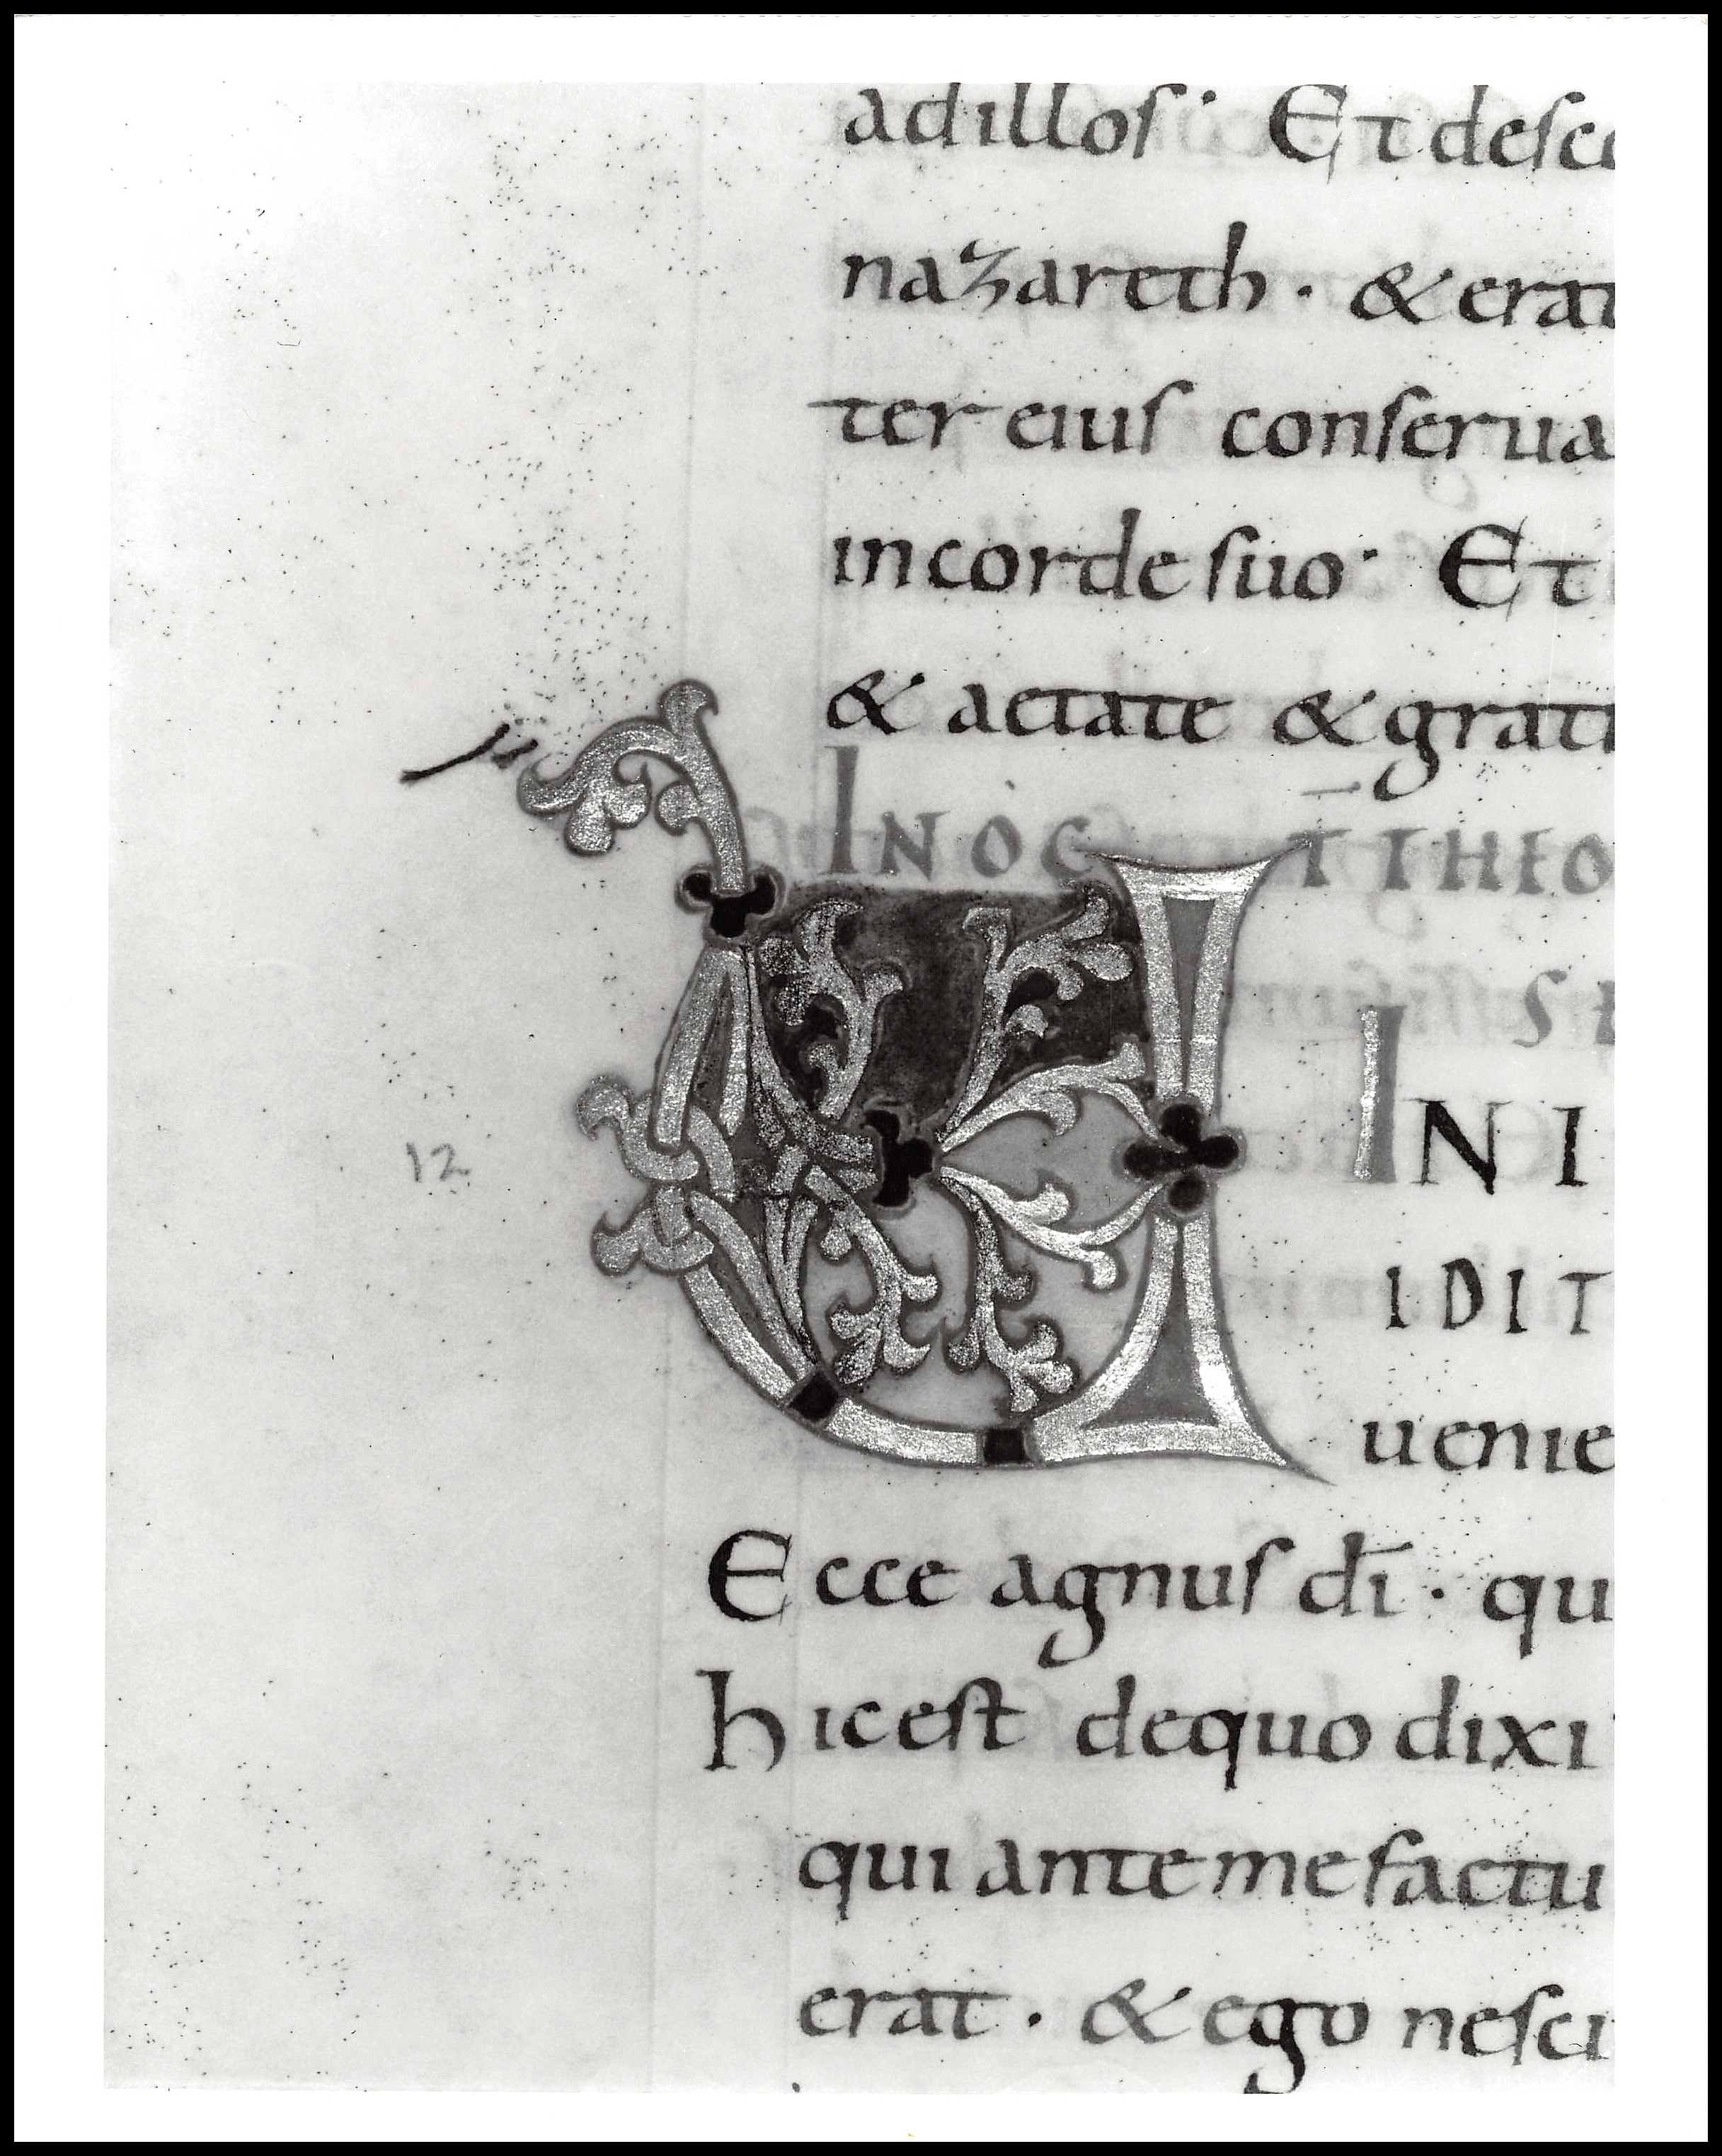 ad illos · Et desce
nazareth · & erat
ter eius conserua
in corde suo · Et
& aetate & grati
IN OCT THEO
IN I
12
IDIT
uenie
Ecce agnus di · qu
hic est de quo dixi
qui ante me factu
erat · & ego nesci